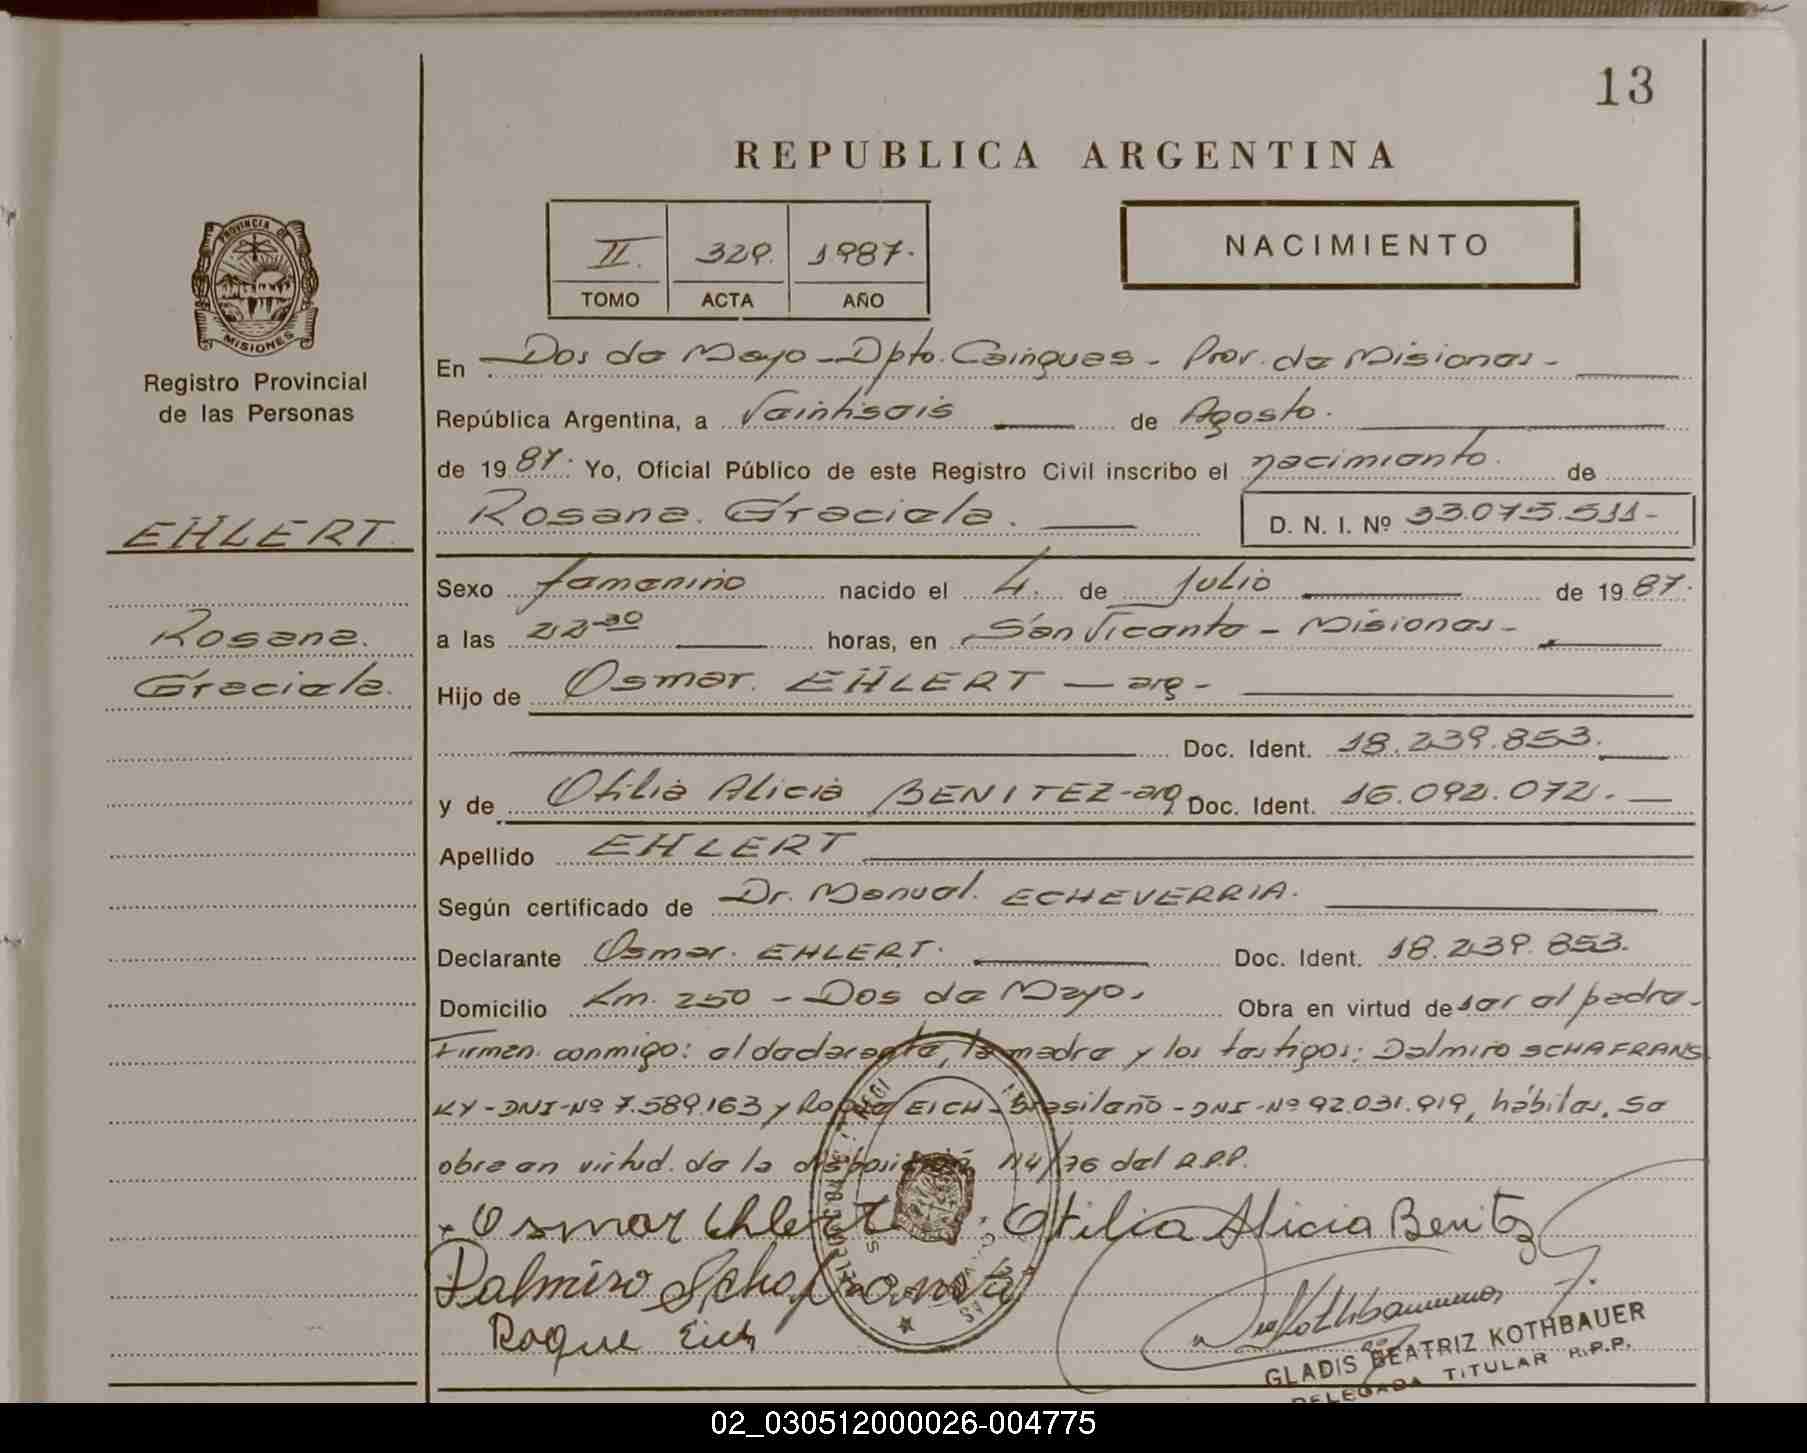 13
REPUBLICA ARGENTINA
II. 329. 1987.
TOMO ACTA AÑO
NACIMIENTO
PROVINCIA DE
MISIONES
Registro Provincial
de las Personas
En Dos de Mayo - Dpto. Cainguas - Prov. de Misiones -
República Argentina, a Veintiseis de Agosto.
de 1987. Yo, Oficial Público de este Registro Civil inscribo el nacimiento. de
Rosana. Graciela. D. N. I. Nº 33.075.511-
EHLERT.
Rosana.
Graciela.
Sexo femenino nacido el 4. de Julio de 1987.
a las 22-30 horas, en San Vicente - Misiones -
Hijo de Osmar. EHLERT — arg -
Doc. Ident. 18.239.853.
y de Otilia Alicia BENITEZ - arg. Doc. Ident. 16.092.072. -
Apellido EHLERT
Según certificado de Dr. Manuel. ECHEVERRIA.
Declarante Osmar. EHLERT. Doc. Ident. 18.239.853.
Domicilio Km. 250 - Dos de Mayo. Obra en virtud de ser el padre -
Firman conmigo: el declarante, la madre y los testigos: Dalmiro SCHAFRANS
KY - DNI - Nº 7.589.163 y Roque EICH - Brasileño - DNI - Nº 92.031.919, hábiles. Se
obra en virtud. de la disposición 114/76 del R.P.P.
Osmar Ehlert Otilia Alicia Benitez
Dalmiro Schafranski
Roque Eich
GLADIS BEATRIZ KOTHBAUER
DELEGADA TITULAR R.P.P.
02_030512000026-004775